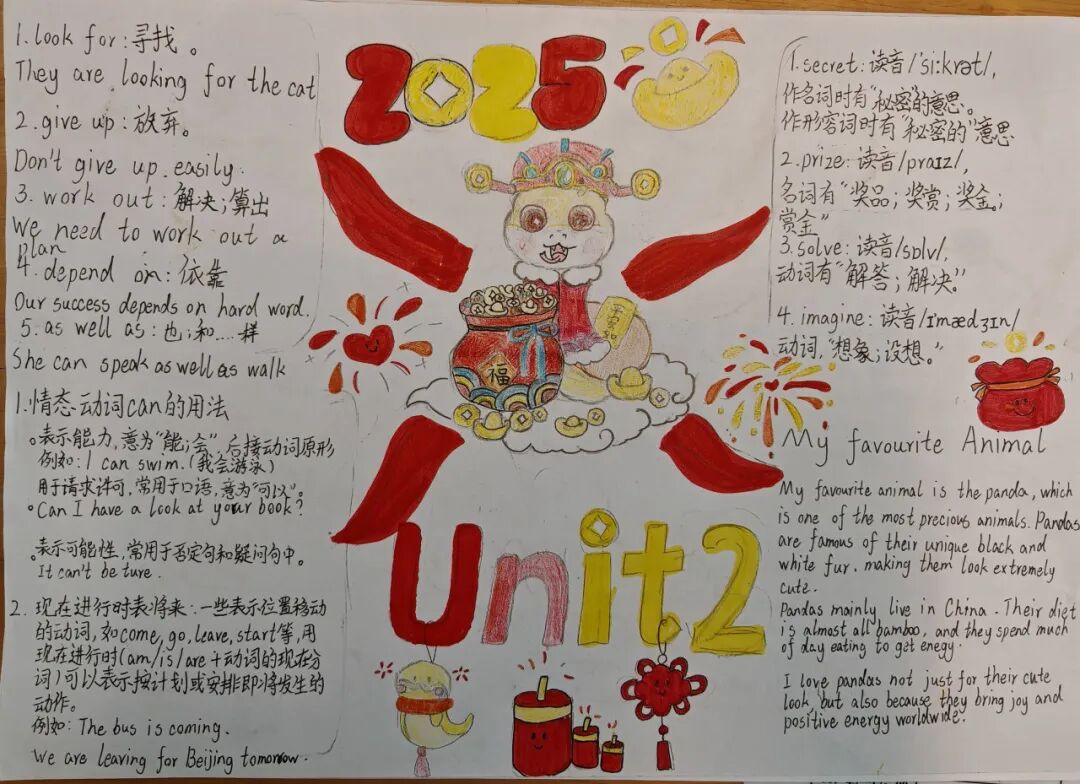 1.look for:寻找。
They are looking for the cat
2.give up:放弃。
Don't give up easily.
3.work out:解决;算出
We need to work out a
plan
4.depend on:依靠
Our success depends on hard word.
5.as well as:也;和....一样
She can speak as well as walk
1.情态动词can的用法
。表示能力,意为"能;会",后接动词原形
例如:I can swim.(我会游泳)
用于请求许可,常用于口语,意为"可以"。
。Can I have a look at your book?
。表示可能性,常用于否定句和疑问句中。
It can't be ture.
2.现在进行时表将来:一些表示位置移动
的动词,如come,go,leave,start等,用
现在进行时(am/is/are+动词的现在分
词)可以表示按计划或安排即将发生的
动作。
例如:The bus is coming.
We are learing for Beijing tomorrow.
2025
福
Unit2
1.secret:读音/'si:krət/,
作名词时有"秘密"的意思。
作形容词时有"秘密的"意思
2.prize:读音/praɪz/,
名词有"奖品;奖赏;奖金。;
赏金"
3.solve:读音/sɒlv/,
动词有"解答;解决"
4.imagine:读音/ɪmædʒɪn/
动词,"想象;设想。"
My favourite Animal
My favourite animal is the panda, which
is one of the most precious animals. Pandas
are famous of their unique black and
white fur. making them look extremely
cute.
Pandas mainly live in China. Their diet
is almost all bamboo, and they spend much
of day eating to get enegy.
I love pandas not just for their cute
look, but also because they bring joy and
positive energy worldwide.